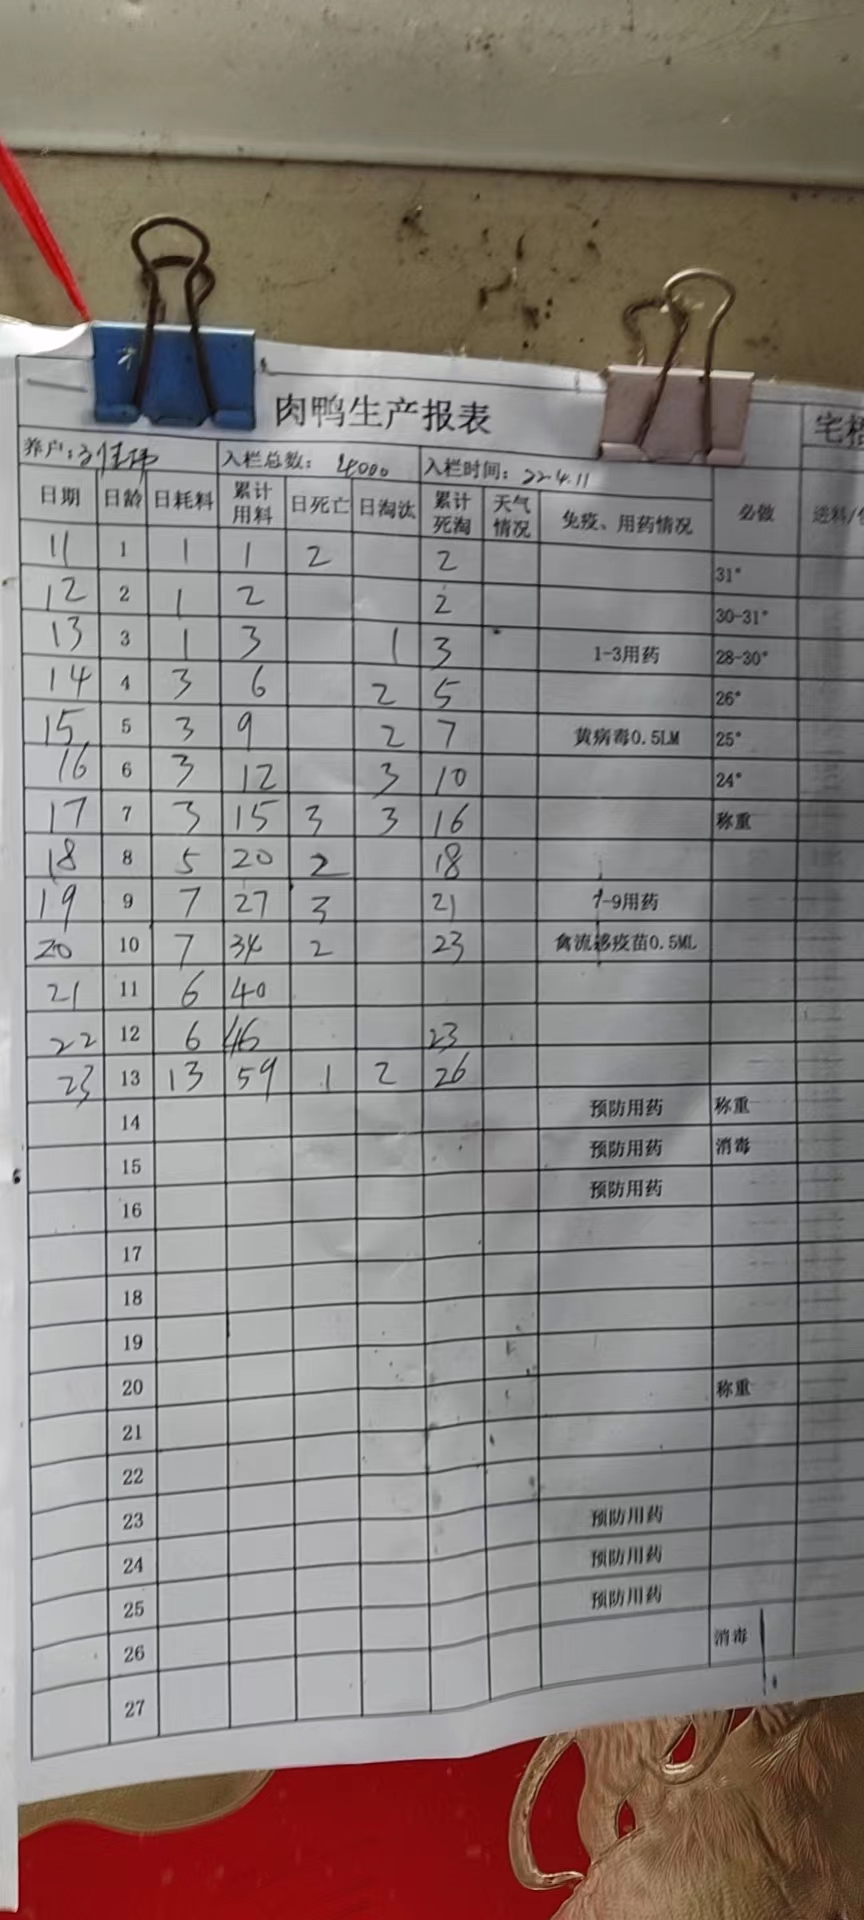 肉鸭生产报表
宅
养户: 入栏总数: 4000 入栏时间: 22.4.11
日期 日龄 日耗料 累计用料 日死亡 日淘汰 累计死淘 天气情况 免疫、用药情况 必做 送料/
11 1 1 1 2 2 31°
12 2 1 2 2 30-31°
13 3 1 3 1 3 1-3用药 28-30°
14 4 3 6 2 5 26°
15 5 3 9 2 7 黄病毒0.5LM 25°
16 6 3 12 3 10 24°
17 7 3 15 3 3 16 称重
18 8 5 20 2 18
19 9 7 27 3 21 7-9用药
20 10 7 34 2 23 禽流感疫苗0.5ML
21 11 6 40
22 12 6 46 23
23 13 13 59 1 2 26
14 预防用药 称重
15 预防用药 消毒
16 预防用药
17
18
19
20 称重
21
22
23 预防用药
24 预防用药
25 预防用药
26 消毒
27